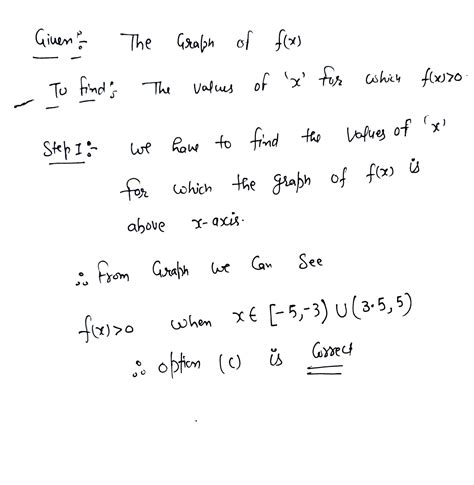 Given :- The Graph of f(x)
To find :- The values of 'x' for which f(x)>0.
Step I :- we have to find the values of 'x'
for which the graph of f(x) is
above x-axis.
∴ From Graph we Can See
f(x)>0 when x ∈ [-5,-3) ∪ (3.5,5)
∴ option (c) is Correct